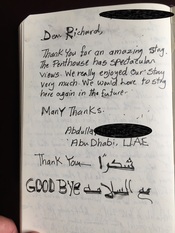 Dear Richard,
Thank you for an amazing stay.
The Penthouse has spectacular
views. We really enjoyed our stay
very much. We would love to stay
here again in the future.
Many Thanks.
Abdulla
Abu Dhabi, UAE
Thank You شكراً
GOOD BYE مع السلامة